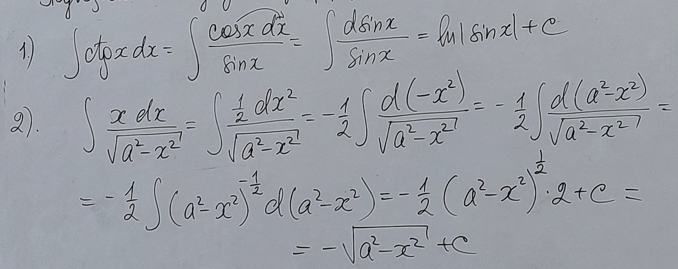 1) ∫ctgxdx = ∫ cosx dx / sinx = ∫ dsinx / sinx = ln|sinx| + C
2). ∫ x dx / √(a²-x²) = ∫ ½ dx² / √(a²-x²) = -½ ∫ d(-x²) / √(a²-x²) = -½ ∫ d(a²-x²) / √(a²-x²) =
= -½ ∫ (a²-x²)^(-½) d(a²-x²) = -½ (a²-x²)^(½) · 2 + C =
= -√(a²-x²) + C